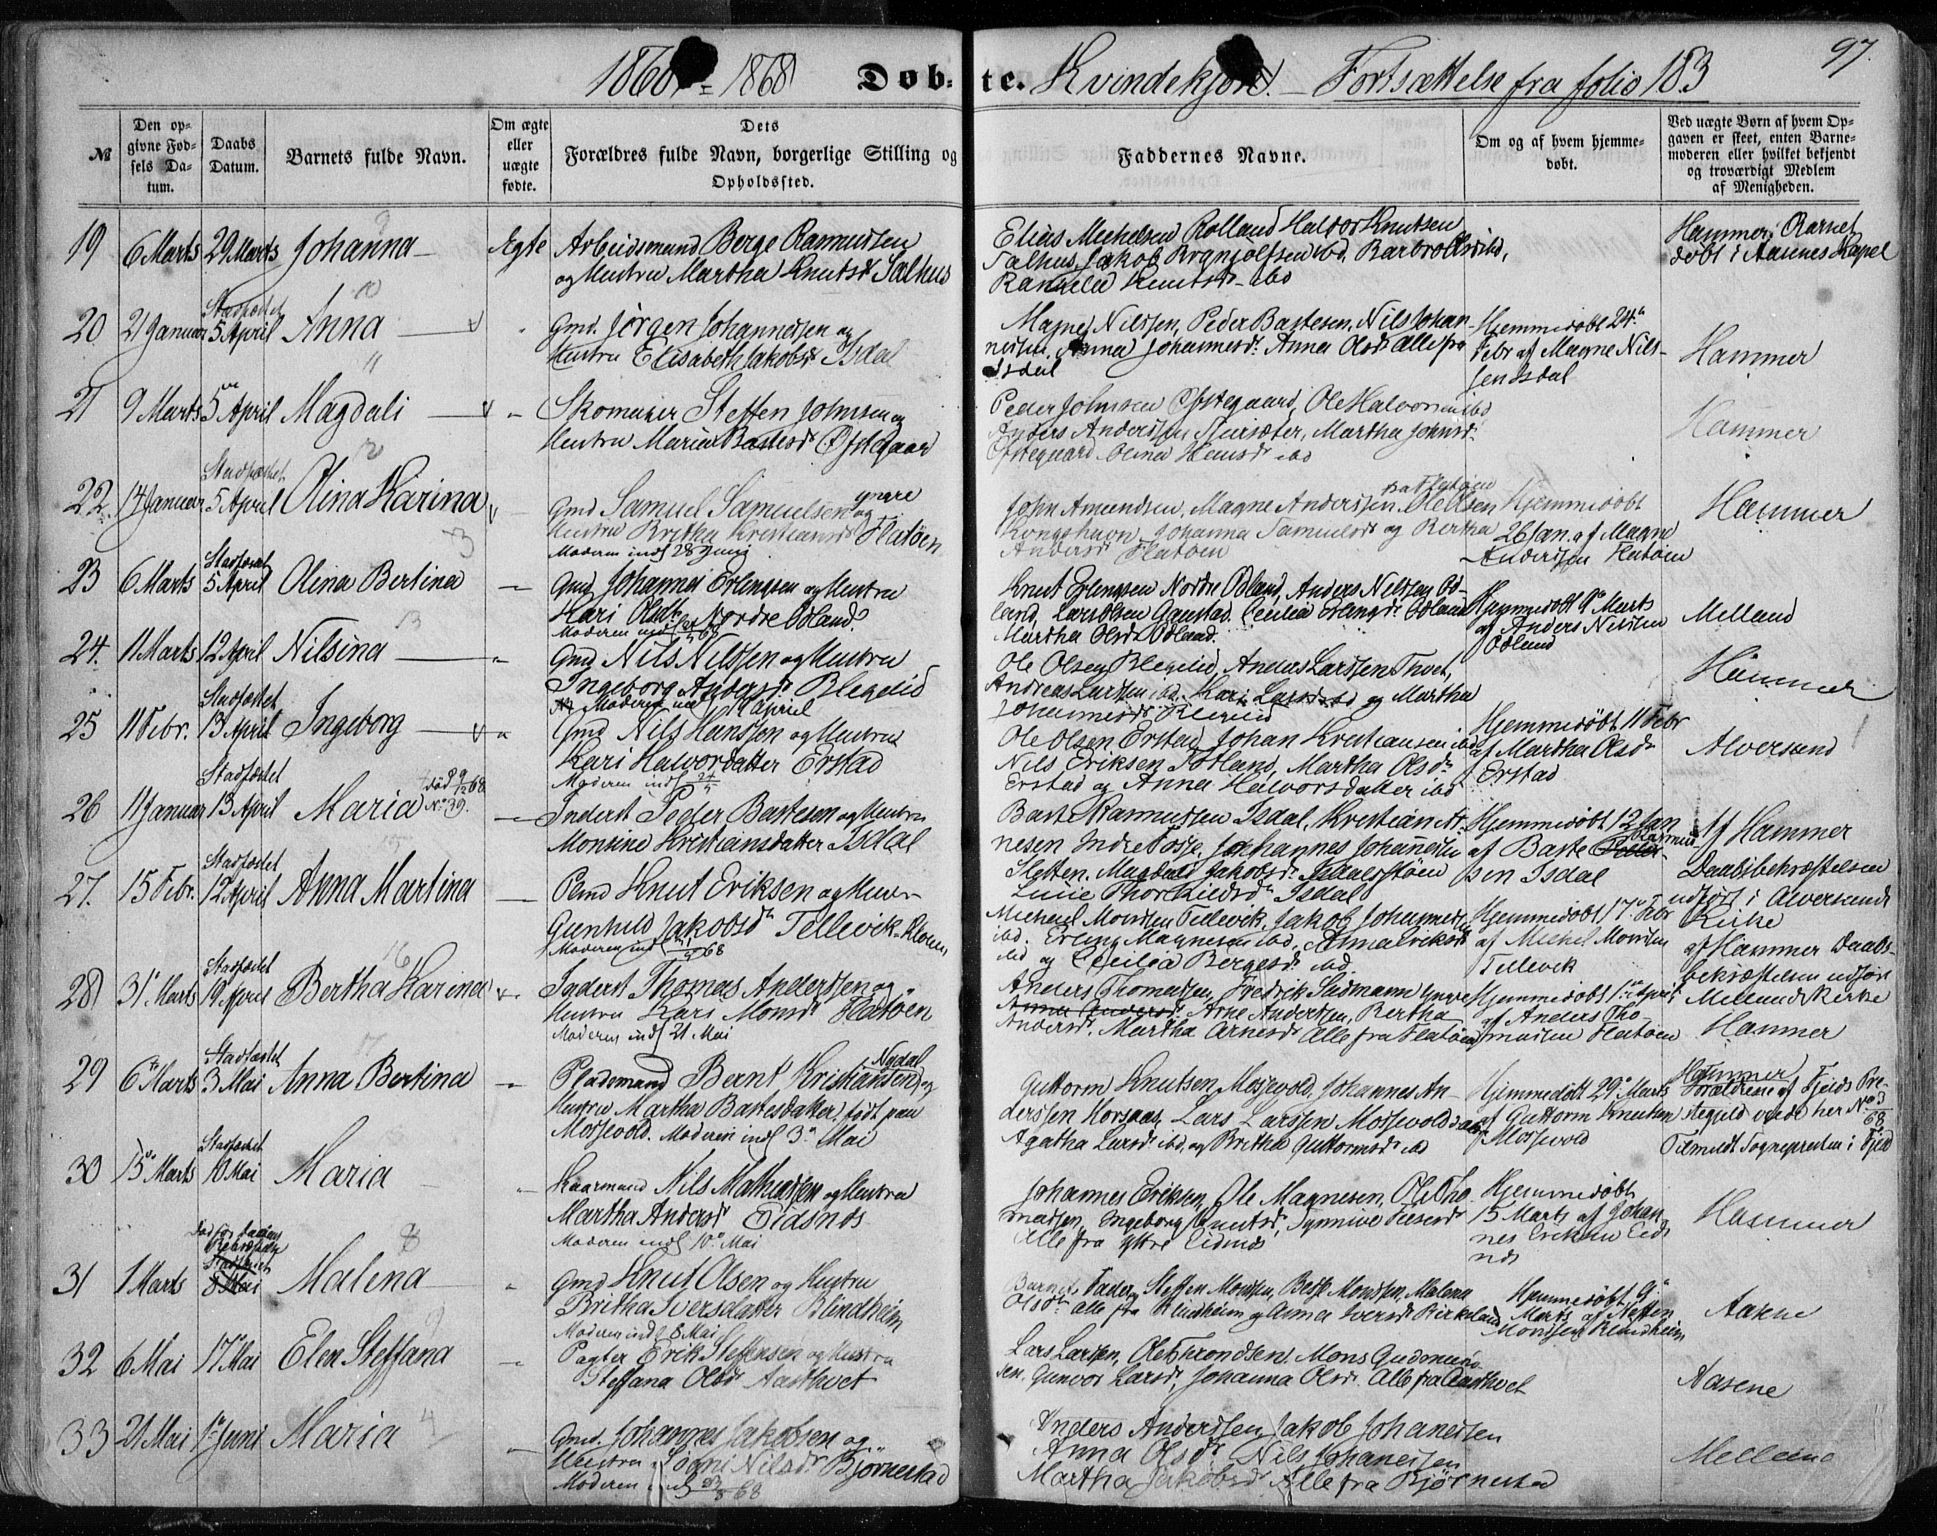 1868 Døbte. Kvindekjøn. — Fortsættelse fra folio 183
97.
№
Den opgivne Fødsels Datum.
Daabs Datum.
Barnets fulde Navn.
Om ægte eller uægte fødte.
Dets
Forældres fulde Navn, borgerlige Stilling og Opholdssted.
Faddernes Navne.
Om og af hvem hjemmedøbt.
Ved uægte Børn af hvem Opgaven er skeet, enten Barnemoderen eller hvilket bekjendt og troværdigt Medlem af Menigheden.
19 6 Marts 29 Marts Johanna Ægte Arbeidsmand Berge Rasmussen
og Hustru Martha Knutsdr Salhus
Elias Michelsen Rolland Halvor Knutsen
Salhus, Jakob Brynjolfsen ibd,
Knutsdr ibd
Hammer. Barnet
døbt i Aasnes Kapel
20 21 Januar Stadfæstet 5 April Anna
Gmd. Jørgen Johannessen og
Hustru Elisabeth Jakobsdr Isdal
Magne Nilssen, Peder Bastesen, Nils Johan-
nessen, Anna Johannesdr. Anna Olsdr Alle fra
Isdal
Hjemmedøbt 24de
Febr af Magne Nils-
sen Isdal
Hammer
21 9 Marts 5 April Magdali
Skomager Steffen Johnsen og
Hustru Maria Bastesdr Øfstegaard
Peder Johnsen Øfstegaard, Ole Halvorsen ibd
Anders Anderssen, Martha Johnsdr
Øfstegaard. Olina Hansdr ibd
Hammer
22. 14 Januar Stadfæstet 5 April Olina Karina
Gmd Samuel Samuelsen yngre og
Hustru Britha Kristiansdr Flatøen
Moderen indl 28 Juni
John Amundsen, Magne Anderssen fra Flatøen
Johanna Samuelsdr og Bertha
Andersdr Flatøen
Hjemmedøbt
26 Jan. af Magne
Anderssen Flatøen
Hammer
23 6 Marts Stadfæstet 5 April Olina Bertina
Gmd Johannes Erlingsen og Hustru
Kari Olsdtr Nordre Odland.
Knut Erlingsen Nordre Odland, Anders Nilssen Od-
land, Lars Olsen Gaustad. Cecilia Erlingsdr Odland
Martha Olsdr Odland.
Hjemmedøbt 9 Marts
af Anders Nilssen
Odland
Melland
24. 11 Marts 12 April Nilsina
Gmd Nils Nilssen og Hustru
Ingeborg Andersdr Blegelid
Ole Olsen Blegelid, Anders Larssen Thvet,
Andreas Larssen ibd. Kari Larsdr ibd og Martha
Johannesdr Blegelid
Hammer
25 11 Febr. Stadfæstet 13 April Ingeborg
Gmd Nils Hanssen og Hustru
Kari Halvordatter Erstad
Ole Olsen Erstad, Johan Kristiansen ibd
Nils Eriksen Totland, Martha Olsdr
Erstad og Anna Halvorsdatter ibd
Hjemmedøbt 11 Febr
af Martha Olsdr
Erstad
Alversund
26 11 Januar Stadfæstet 13 April Maria
No 39.
Inderst Peder Bastesen og Hustru
Monsine Kristiansdatter Isdal
Baste Rasmussen Isdal,
Johannes Johannessen
Sletten, Magdali Jakobsdr
Isdal
Hjemmedøbt 12 Jan
af Baste Rasmus-
sen Isdal
Af Hammer
Daabsbekræftelsen
udført i Alversunds
Kirke
27. 15 Febr. Stadfæstet 12 April Anna Martina
Plmd Knut Eriksen og Hustru
Gunhild Jakobsdr Tellevik
Michael Monssen Tellevik, Jakob Johannessen
ibd. Erling Magnesen ibd, Anna Eriksdr
ibd og Cecilia Bergesdr ibd.
Hjemmedøbt 17 Febr
af Michel Monssen
Tellevik
af Hammer Daabs-
bekræftelsen udført
Mellands Kirke
28 31 Marts Stadfæstet 19 April Bertha Karina
Inderst Thomas Anderssen og
Hustru Kari Monsdr Flatøen
Moderen indl 21 Mai
Anders Thomassen, Fredrik Sidmann yngre
Arne Anderssen, Bertha
Andersdr. Martha Arnesdr Alle fra Flatøen
Hjemmedøbt 1ste April
af Anders Tho-
massen Flatøen
Hammer
29 6 Marts Stadfæstet 3 Mai Anna Bertina
Pladsmand Bernt Kristiansen Nydal og
Hustru Martha Bastesdatter, født paa
Mossevold. Moderen indl 3 Mai
Guttorm Knutsen Mossevold, Johannes An-
derssen Horsaas, Lars Larssen Mossevold
Agatha Larsdr ibd, og Britha Guttormsdr ibd
Hjemmedøbt 29 Marts
af Guttorm Knutsen
Mossevold
Hammer
Forældrene af Fjelds Præ-
stegjeld
Tilmeldt Sognepresten i Fjeld
30 15 Marts Stadfæstet 10 Mai Maria
Kaarmand Nils Mathiassen og Hustru
Martha Andersdr Eidsnes
Moderen indl 10 Mai
Johannes Eriksen, Ole Magnesen, Ole Tho-
massen, Ingeborg Knutsdr,
Alle fra Ytre Eidsnes
Hjemmedøbt
15 Marts af Johan-
nes Eriksen Eids-
nes
Hammer
31 1 Marts 8 Mai Malena
Gmd Knut Olsen og Hustru
Britha Iversdatter Blindheim
Moderen indl 8 Mai
Barnets Fader, Steffen Monssen, Malena
Olsdtr alle fra Blindheim og Anna Iversdr Birkeland
Hjemmedøbt 9
Marts af Steffen
Monssen Blindheim
Aasene
32 6 Mai 17 Mai Elen Steffana
Pagter Erik Steffensen og Hustru
Steffana Olsdr Aasthvet
Lars Larsen, Ole Throndsen. Mons Gudmund-
sen. Gunvor Larsdr, Johanna Olsdr. Alle fra Aasthvet
Aasene
33 21 Mai 1 Juni Maria
Gmd. Johannes Jakobsen og
Hustru Nilsdr Bjørnestad
Anders Anderssen, Jakob Johannessen
Anna Olsdr Nils Johannessen
Martha Jakobsdr. Alle fra Bjørnestad
Melland